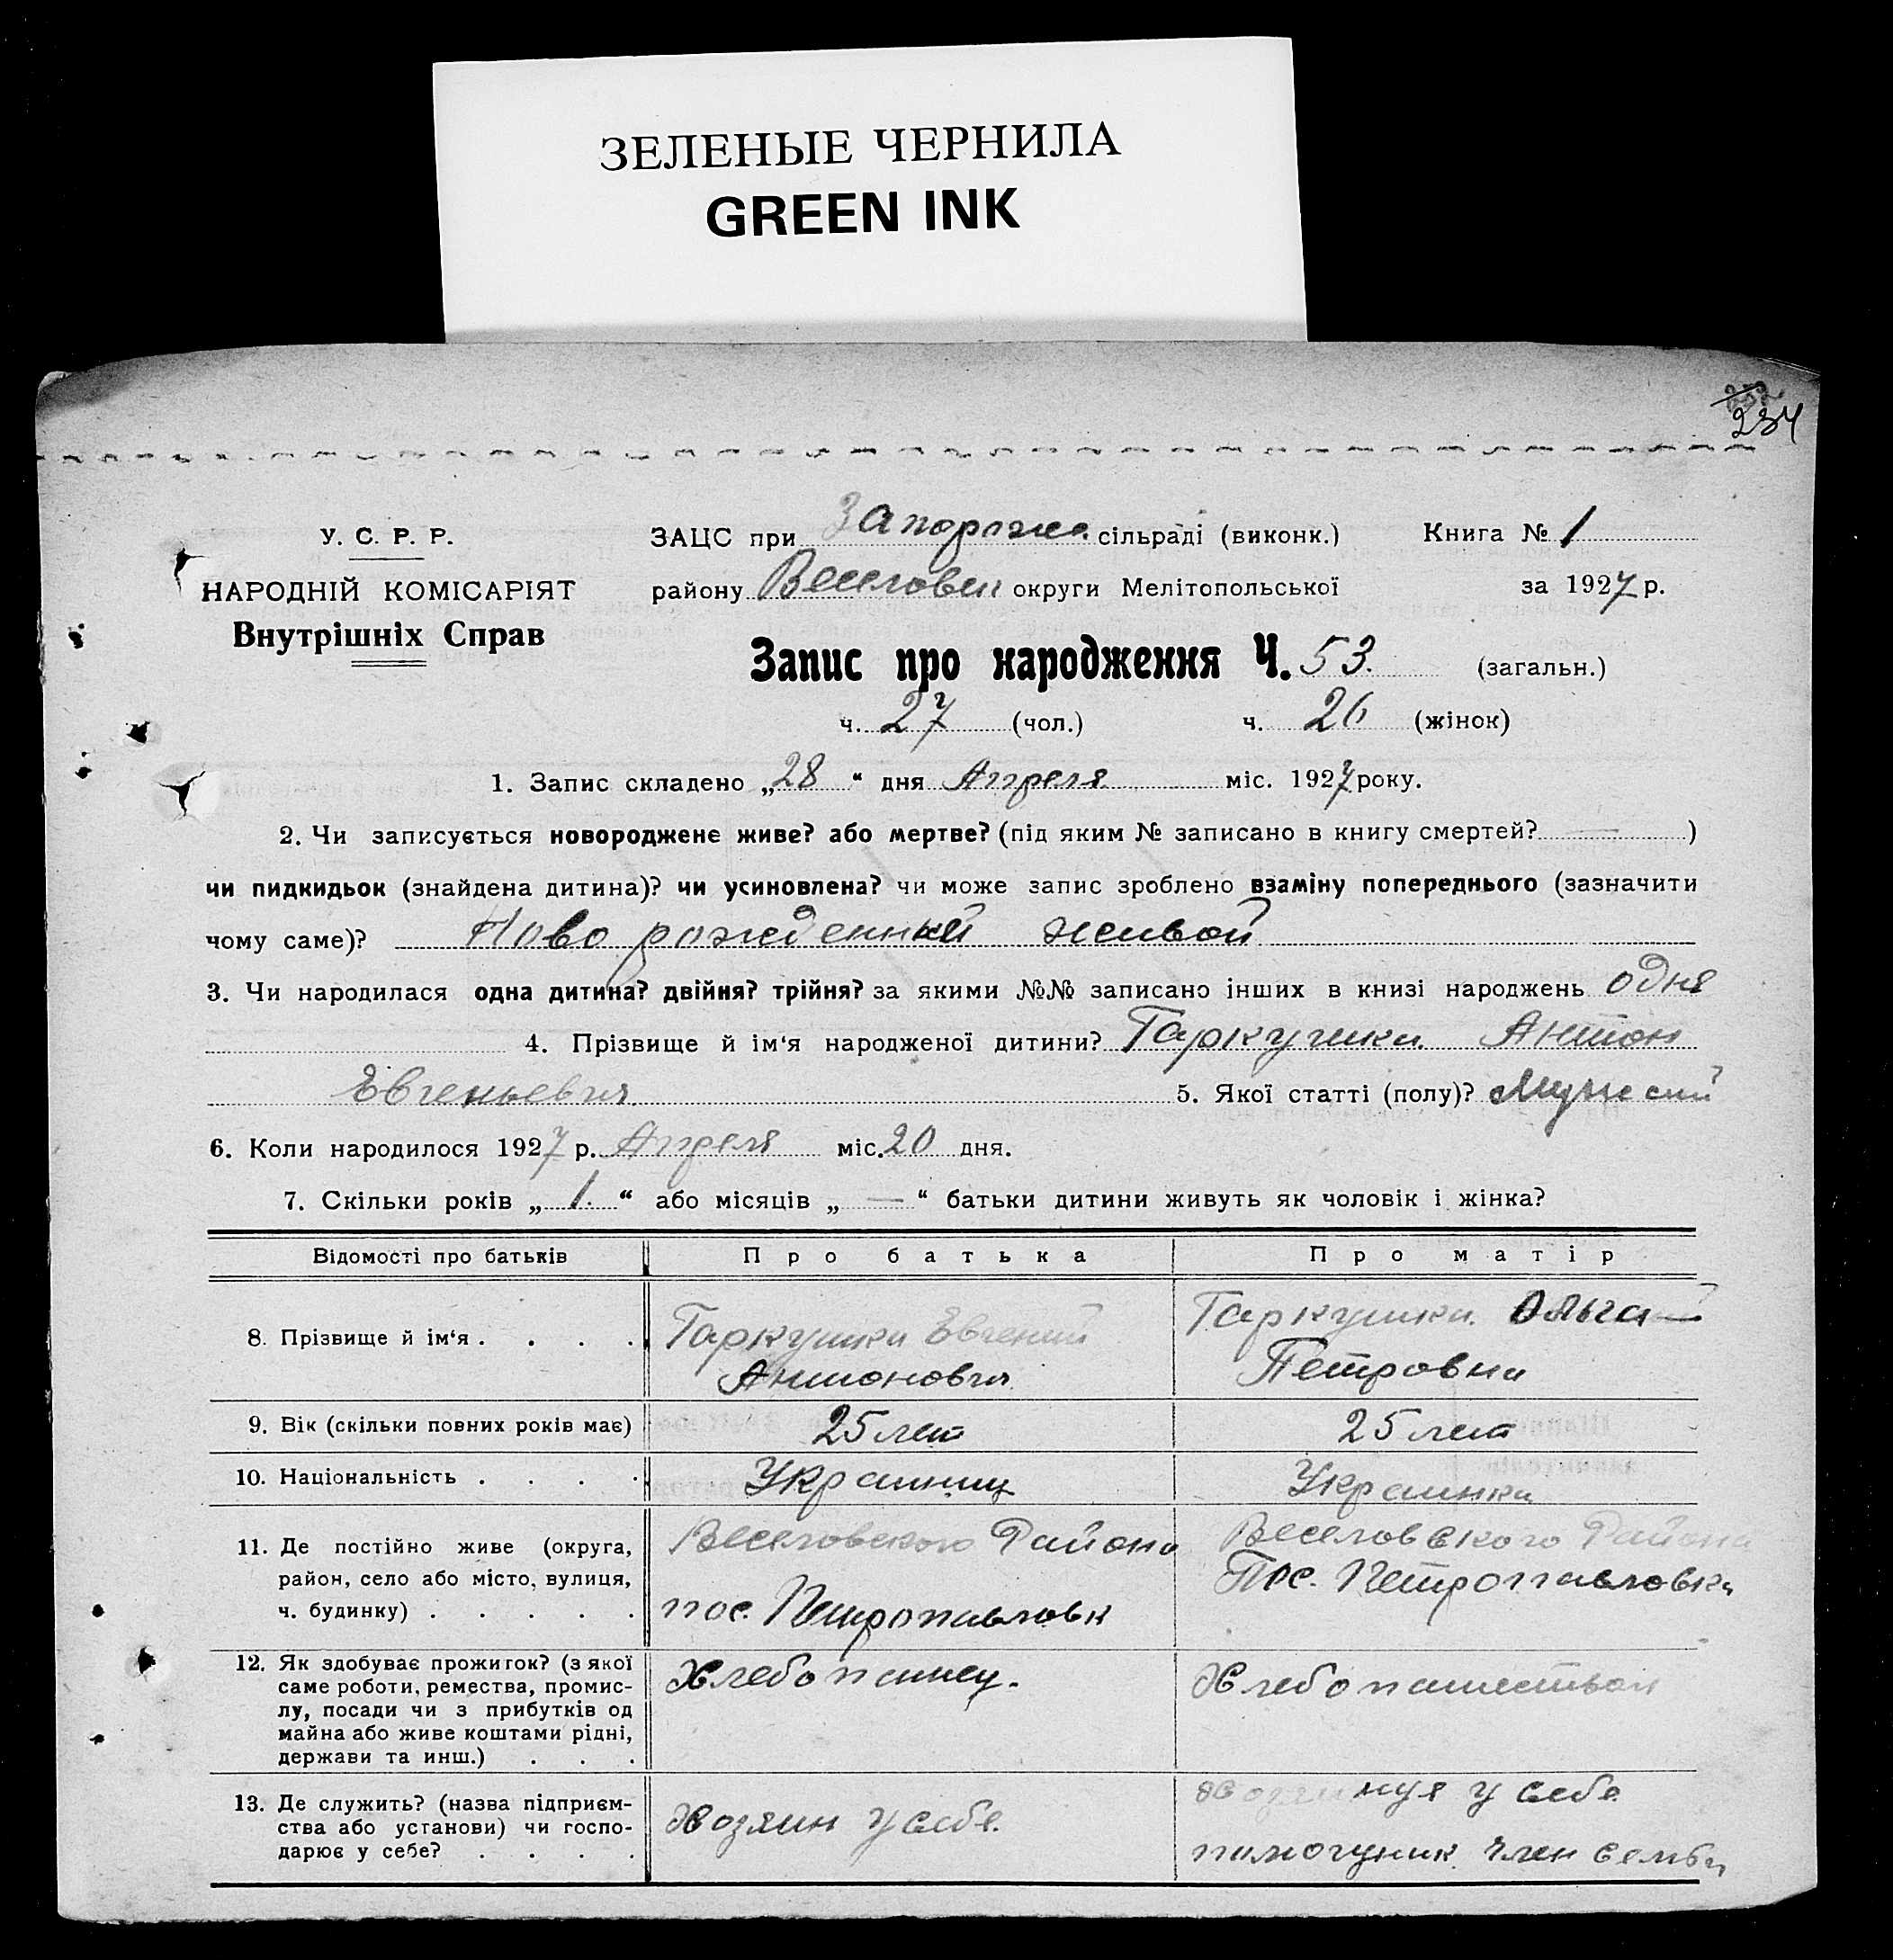 ЗЕЛЕНЫЕ ЧЕРНИЛА
GREEN INK
234
У. С. Р. Р.
НАРОДНІЙ КОМІСАРІЯТ
Внутрішніх Справ
ЗАЦС при Запорожс. сільраді (виконк.) Книга № 1
району Веселовск округи Мелітопольської за 1927 р.
Запис про народження Ч. 53. (загальн.)
ч. 27 (чол.) ч. 26 (жінок)
1. Запис складено „28“ дня Апреля міс. 1927 року.
2. Чи записується новороджене живе? або мертве? (під яким № записано в книгу смертей? — )
чи пидкидьок (знайдена дитина)? чи усиновлена? чи може запис зроблено взаміну попереднього (зазначити
чому саме)? Ново рожденный живой
3. Чи народилася одна дитина? двійня? трійня? за якими №№ записано інших в книзі народжень одня
4. Прізвище й ім‘я народженої дитини? Гаркушка Антон
Евгеньевич 5. Якої статті (полу)? Мужский
6. Коли народилося 1927 р. Апреля міс. 20 дня.
7. Скільки років „ 1. “ або місяців „ — “ батьки дитини живуть як чоловік і жінка?
Відомості про батьків Про батька Про матір
8. Прізвище й ім‘я . . . .
Гаркушка Евгений
Антонович
Гаркушка Ольга
Петровна
9. Вік (скільки повних років має) 25 лет 25 лет
10. Національність . . . . Украинец Украинка
11. Де постійно живе (округа,
район, село або місто, вулиця,
ч. будинку) . . . . .
Веселовского Района
пос. Петропавловк
Веселовского Района
Пос. Петропавловка
12. Як здобуває прожиток? (з якої
саме роботи, ремества, промис-
лу, посади чи з прибутків од
майна або живе коштами рідні,
держави та инш.) . . .
Хлебопашец.
Хлебопашеством
13. Де служить? (назва підприєм-
ства або установи) чи госпо-
дарює у себе? . . . .
Хозяин у себе.
у себе
член семьи